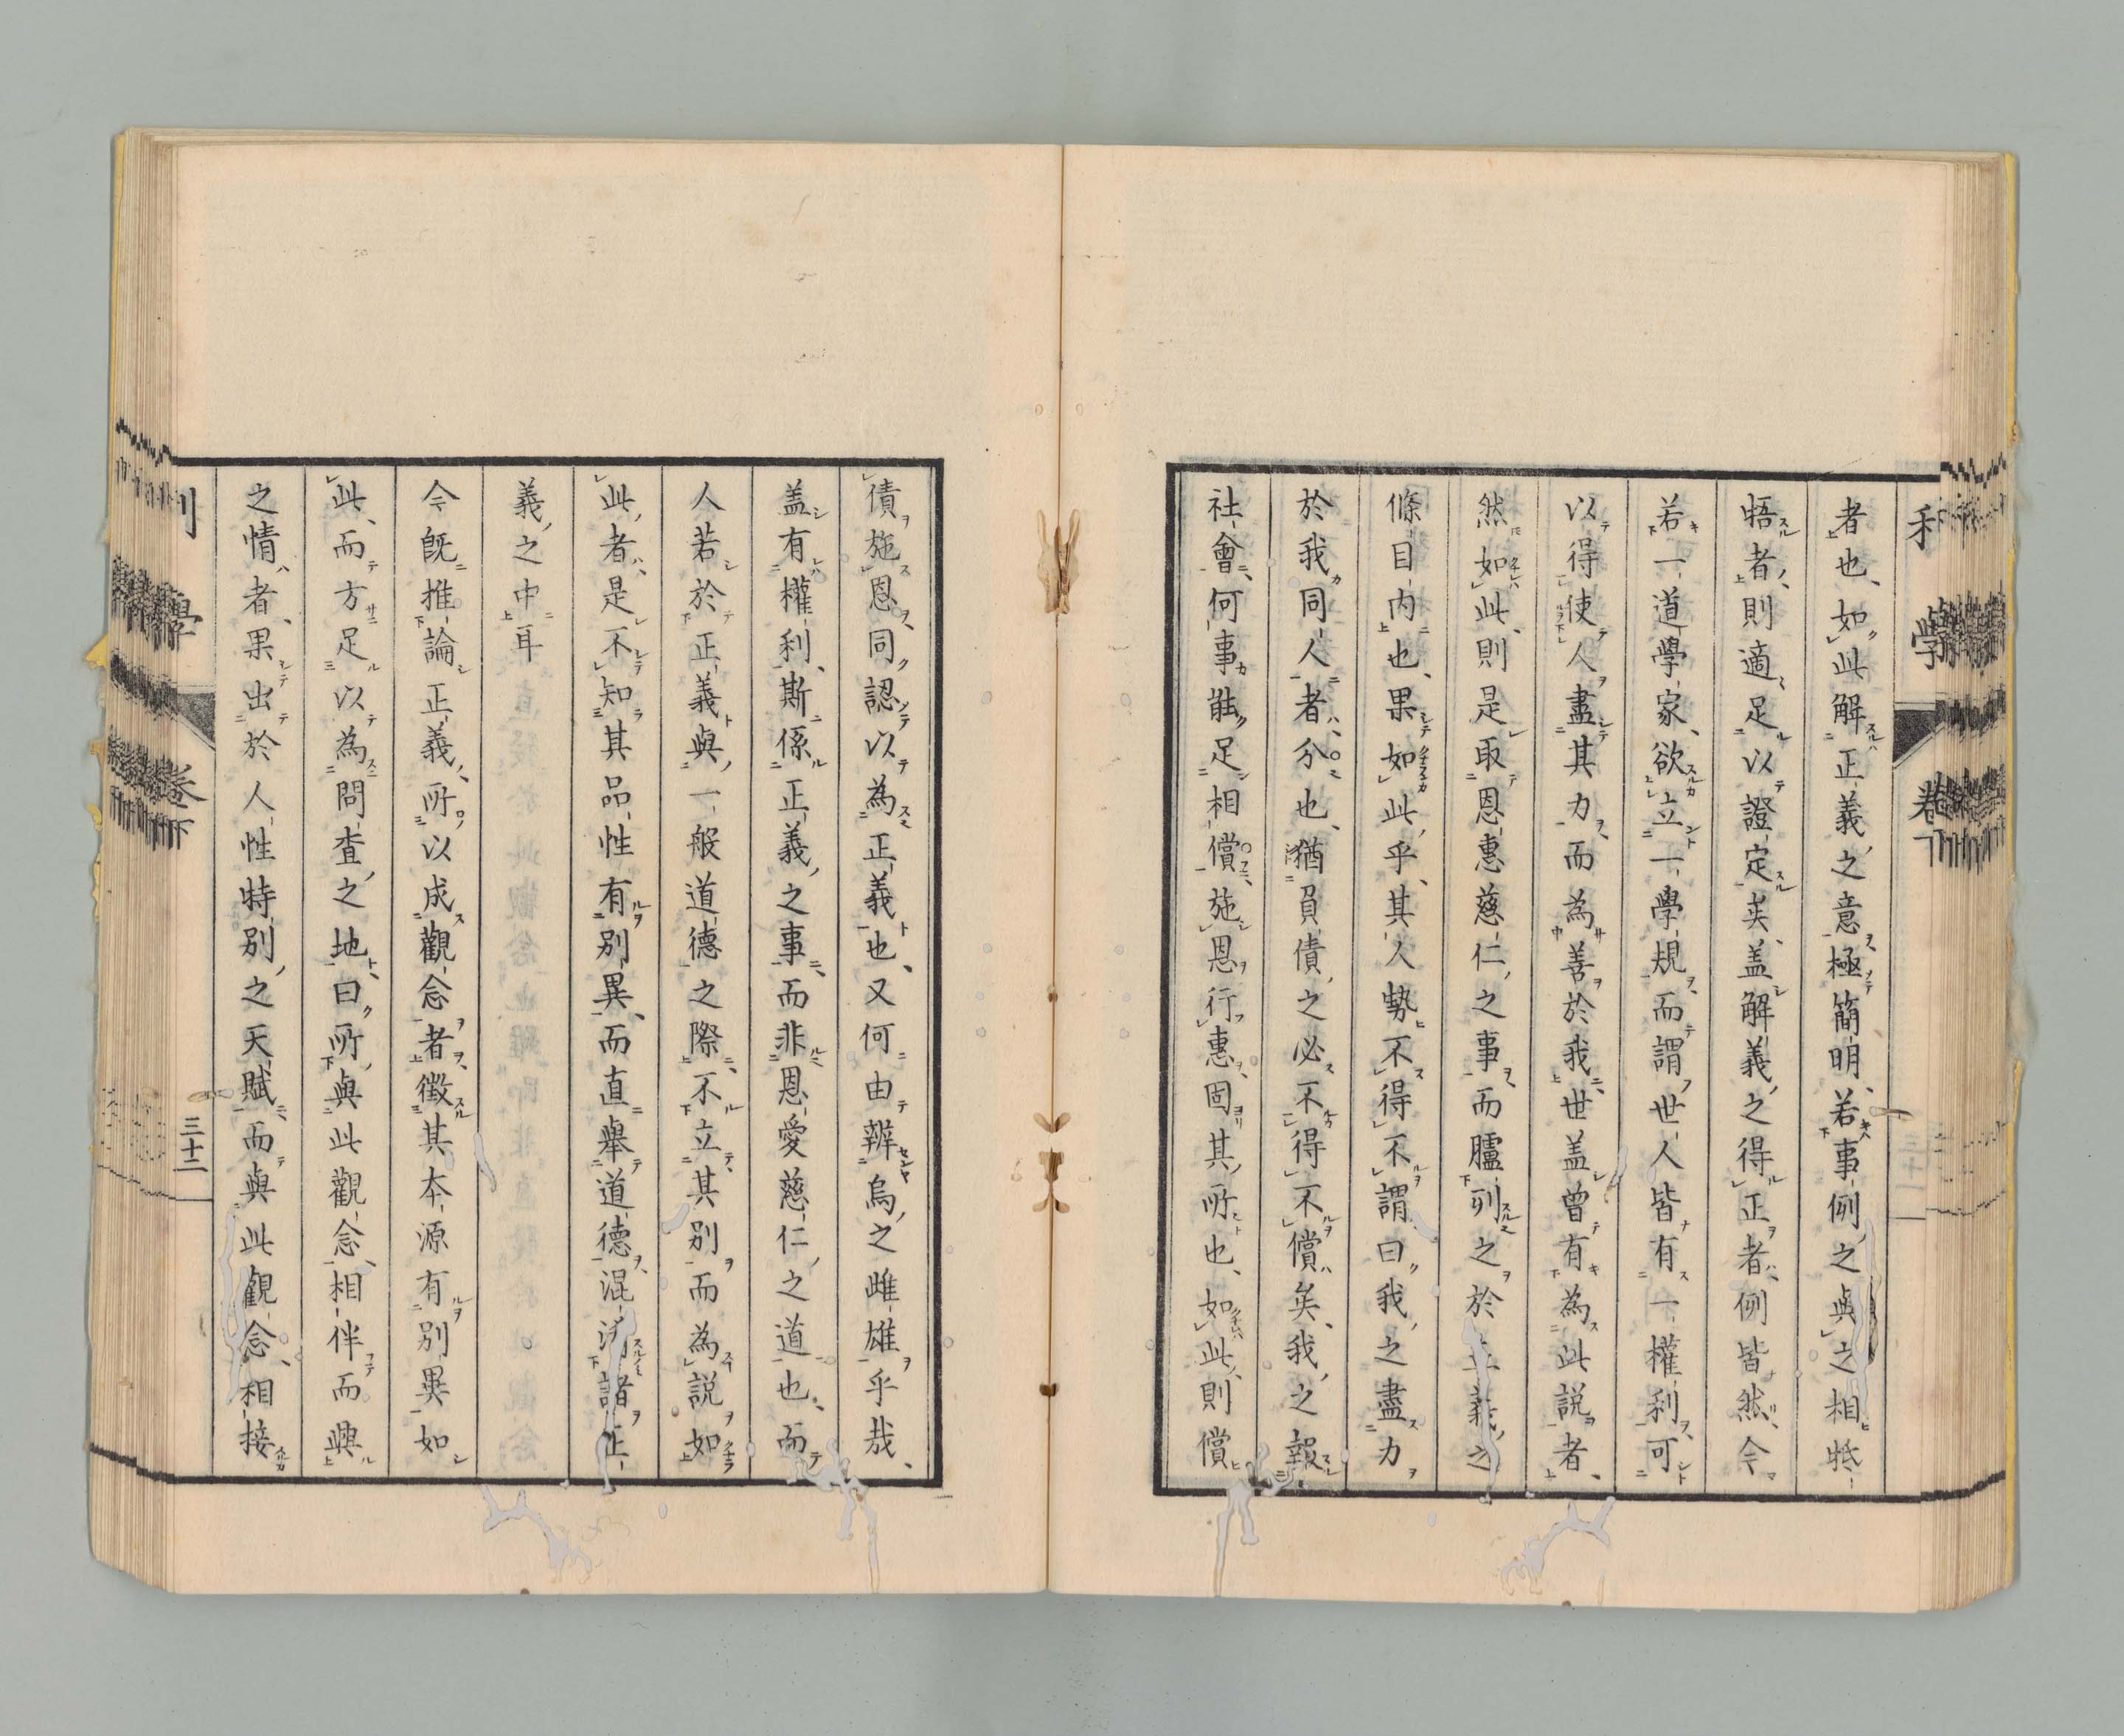 者也、如此解正義之意極簡明、若事例之與之相牴
牾者、則適足以證定矣、盖解義之得正者、例皆然、今
若一道學家、欲立一學規、而謂世人皆有一權利、可
以得使人盡其力、而為善於我世盖曾有為此說者、
然如此、則是取恩惠慈仁之事、而臚列之於正義之
條目内也、果如此乎、其人勢不得不謂曰我之盡力
於我同人者、分也、猶負債之必不得不償矣、我之報
社會、何事能足相償、施恩行惠、固其所也、如此、則償
債施恩、同認以為正義也、又何由辨烏之雌雄乎哉、
盖有權利、斯係正義之事、而非恩愛慈仁之道也、而
人若於正義與一般道德之際、不立其別、而為說如
此者、是不知其品性有別異、而直舉道德、混淆諸正
義之中耳
今既推論正義、所以成觀念者、徵其本源有別異、如
此、而方足以為問查之地、曰、所與此觀念、相伴而興
之情者、果出於人性特別之天賦、而與此觀念、相接
利學
卷下
三十二